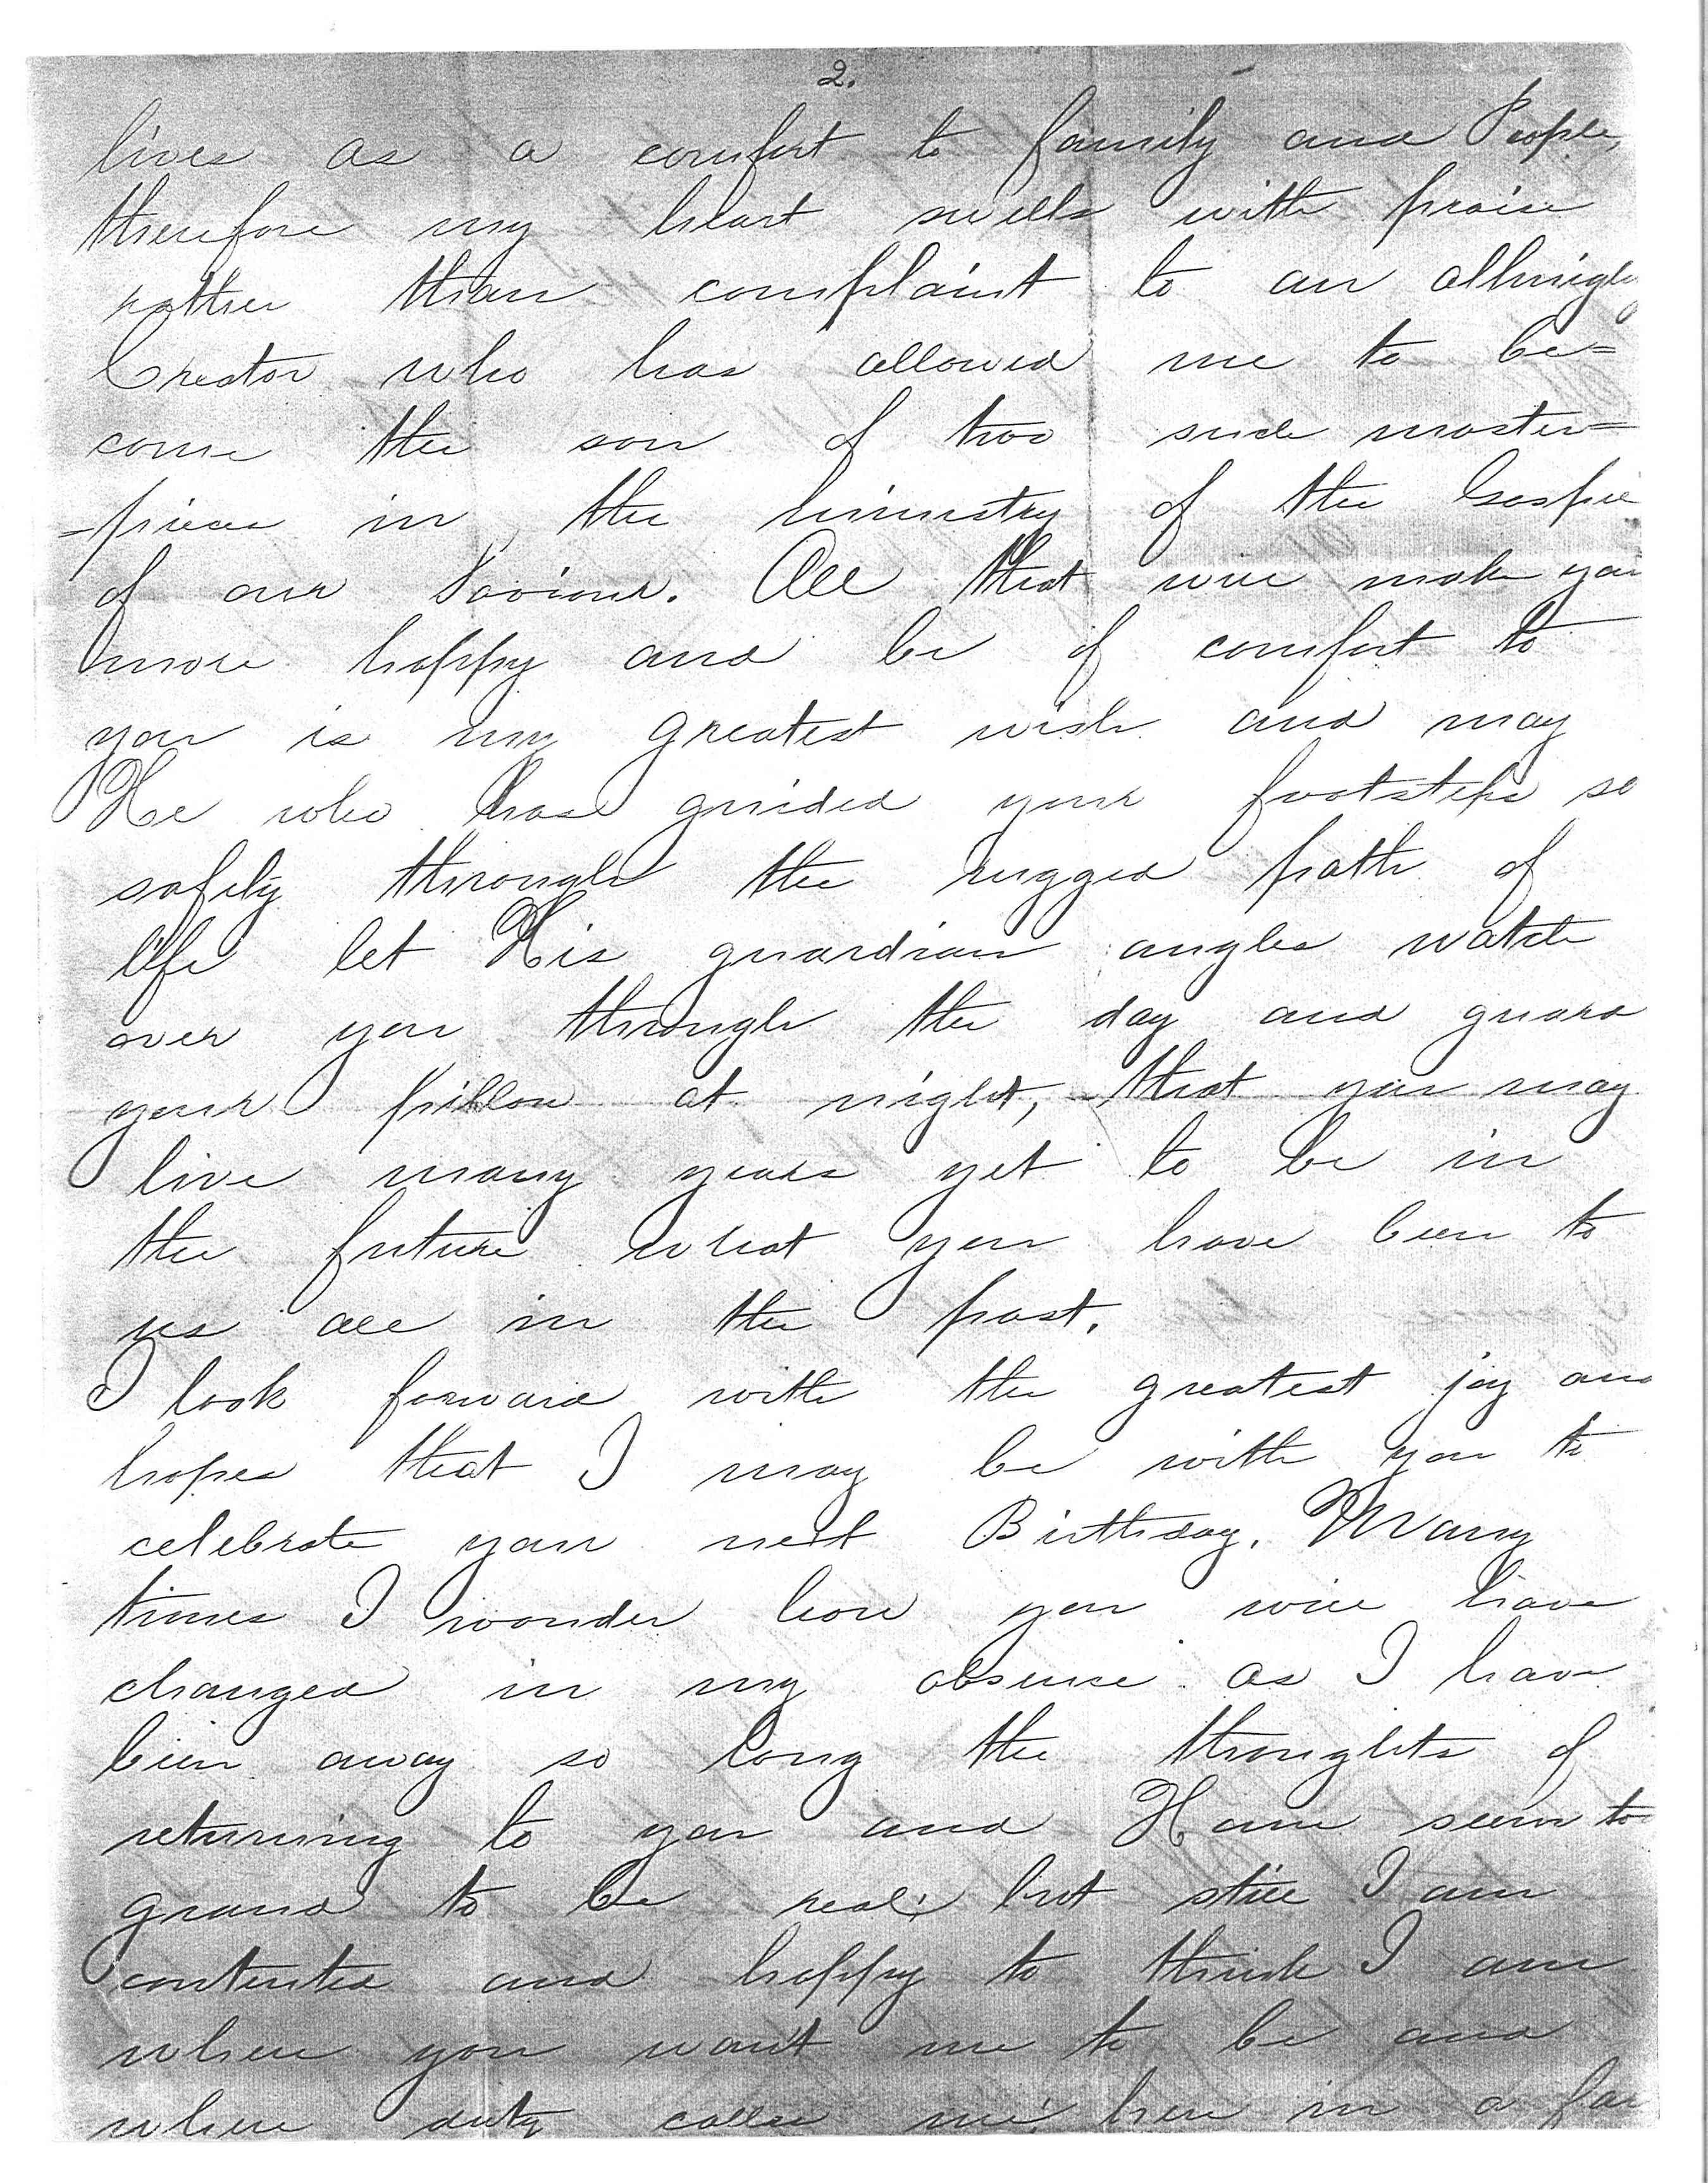 2.
lives as a comfort to family and People,
therefore my heart swells with praise
rather than complaint to an allmighty
Creator who has allowed me to be=
come the son of two such master=
=pieces in the ministry of the Gospel
of our Saviour. All that will make you
more happy and be of comfort to
you is my greatest wish and may
He who has guided your footsteps so
safely through the rugged path of
life let His guardian angles watch
over you through the day and guard
your pillow at night, that you may
live many years yet to be in
the future what you have been to
us all in the past.
I look forward with the greatest joy and
hopes that I may be with you to
celebrate your next Birthday. Many
times I wonder how you will have
changed in my absence as I have
been away so long the thoughts of
returning to you and Home seem to
grand to be real; but still I am
contented and happy to think I am
where you want me to be and
where duty calls me; here in a far